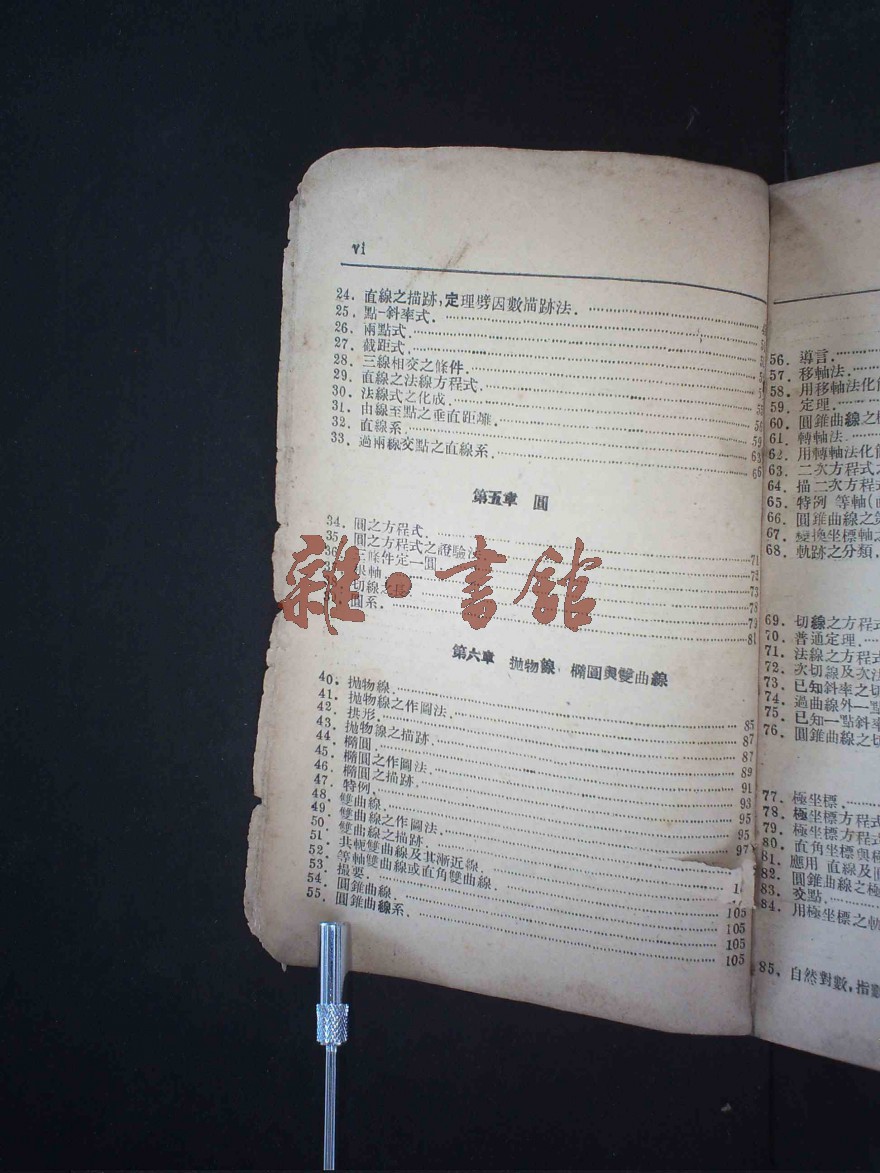 vi
24. 直線之描跡,定理劈因數描跡法.
25. 點-斜率式.
26. 兩點式.
27. 截距式.
28. 三線相交之條件.
29. 直線之法線方程式.
30. 法線式之化成.
31. 由線至點之垂直距離. 59
32. 直線系. 63
33. 過兩線交點之直線系. 66
第五章 圓
34. 圓之方程式. 71
35. 圓之方程式之證驗法
36. 三條件定一圓 73
軸 78
切線之長 79
圓系. 81
第六章 拋物線 橢圓與雙曲線
40. 拋物線. 85
41. 拋物線之作圖法. 87
42. 拱形. 87
43. 拋物線之描跡. 89
44. 橢圓. 91
45. 橢圓之作圖法. 93
46. 橢圓之描跡. 95
47. 特例. 95
48. 雙曲線. 97
49. 雙曲線之作圖法.
50. 雙曲線之描跡.
51. 共軛雙曲線及其漸近線.
52. 等軸雙曲線或直角雙曲線. 105
53. 撮要. 105
54. 圓錐曲線. 105
55. 圓錐曲線系. 105
56. 導言.
57. 移軸法.
58. 用移軸法化
59. 定理.
60. 圓錐曲線之
61. 轉軸法.
62. 用轉軸法化
63. 二次方程式之
64. 描二次方程式
65. 特例 等軸(
66. 圓錐曲線之
67. 變換坐標軸之
68. 軌跡之分類.
69. 切線之方程式
70. 普通定理.
71. 法線之方程式
72. 次切線及次法
73. 已知斜率之切
74. 過曲線外一點
75. 已知一點斜率
76. 圓錐曲線之切
77. 極坐標.
78. 極坐標方程式
79. 極坐標方程式
80. 直角坐標與極
81. 應用 直線及圓
82. 圓錐曲線之極
83. 交點.
84. 用極坐標之軌
85. 自然對數,指數
雜·書館